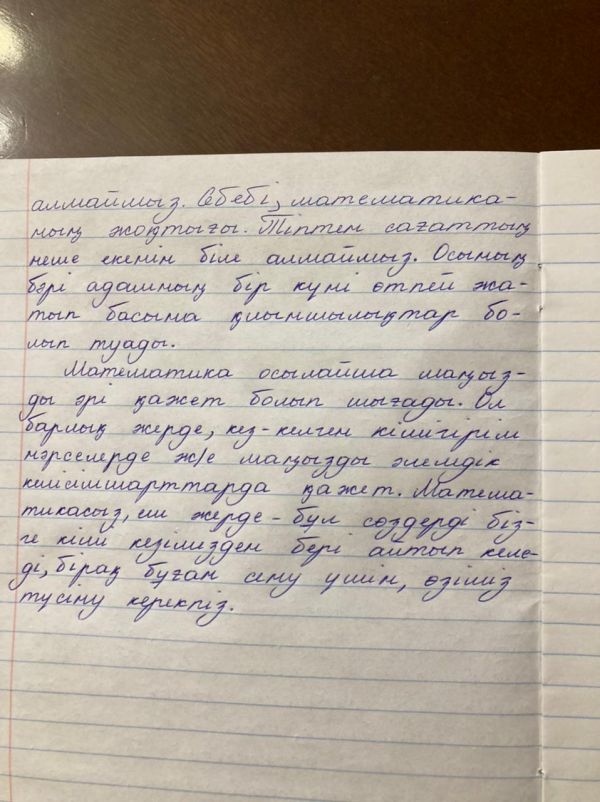 алмаймыз. Себебі, математика-
ның жоқтығы. Тіптен сағаттың
неше екенін біле алмаймыз. Осының
бәрі адамның бір күні өтпей жа-
тып басына қиыншылықтар бо-
лып туады.
Математика осылайша маңыз-
ды әрі қажет болып шығады. Ол
барлық жерде, кез-келген кішігірім
нәрселерде ж/е маңызды әлемдік
келісімшарттарда қажет. Матема-
тикасыз, еш жерде - бұл сөздерді біз-
ге кіші кезімізден бері айтып келе-
ді, бірақ бұған сену үшін, өзіміз
түсіну керекпіз.